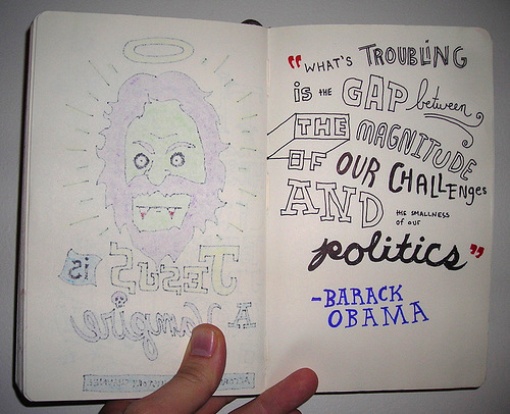 JESUS is
A Vampire
"WHAT'S TROUBLING
is THE GAP between
THE MAGNITUDE
OF OUR CHALLENges
AND THE SMALLNESS
OF OUR
politics"
-BARACK
OBAMA